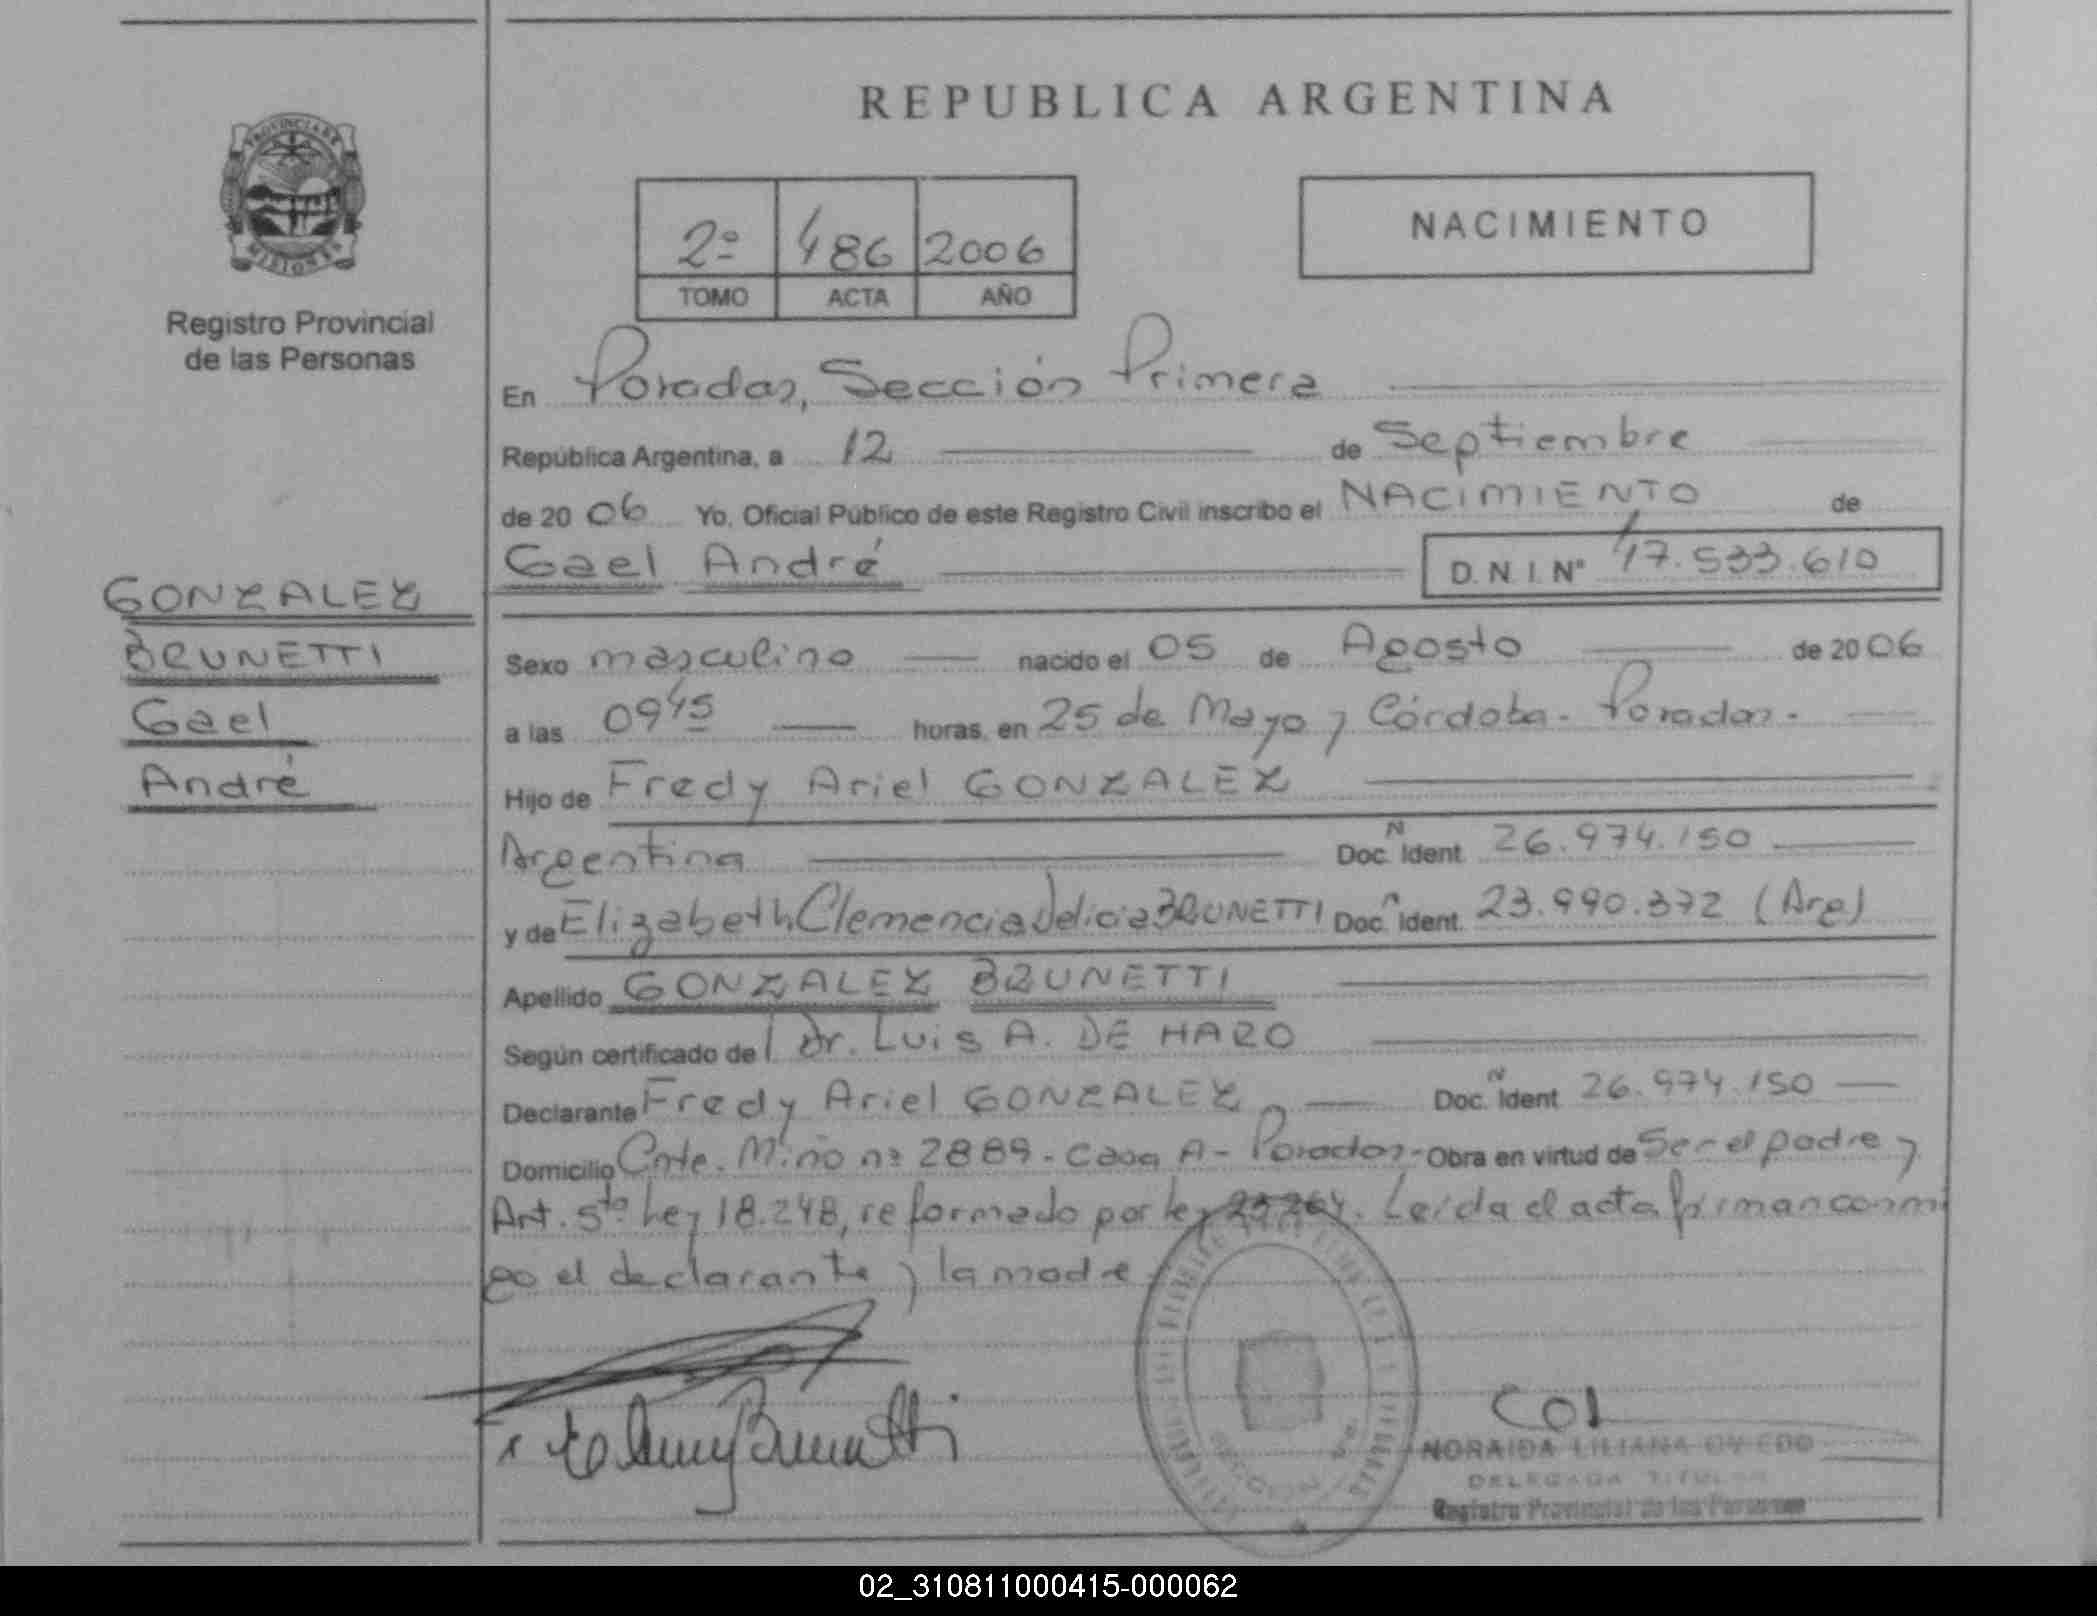 REPUBLICA ARGENTINA
PROVINCIA DE
MISIONES
Registro Provincial
de las Personas
2º 486 2006
TOMO ACTA AÑO
NACIMIENTO
En Posadas, Sección Primera
República Argentina, a 12 de Septiembre
de 2006 Yo, Oficial Público de este Registro Civil inscribo el NACIMIENTO de
Gael André D.N.I. Nº 47.533.610
GONZALEZ
BRUNETTI
Gael
André
Sexo masculino nacido el 05 de Agosto de 2006
a las 0945 horas, en 25 de Mayo y Córdoba - Posadas -
Hijo de Fredy Ariel GONZALEZ
Argentina Doc. N Ident. 26.974.150
y de Elizabeth Clemencia Delicia BRUNETTI Doc. n Ident. 23.990.372 (Arg)
Apellido GONZALEZ BRUNETTI
Según certificado del Dr. Luis A. DE HARO
Declarante Fredy Ariel GONZALEZ Doc. N Ident. 26.974.150
Domicilio Cnte. Miño nº 2889 - casa A - Posadas - Obra en virtud de Ser el padre y
Art. 5to. Ley 18.248, reformado por ley. Leída el acta firman conmi
go el declarante y la madre
Brunetti
NORAIDA LILIANA OVIEDO
DELEGADA TITULAR
Registro Provincial de las Personas
02_310811000415-000062